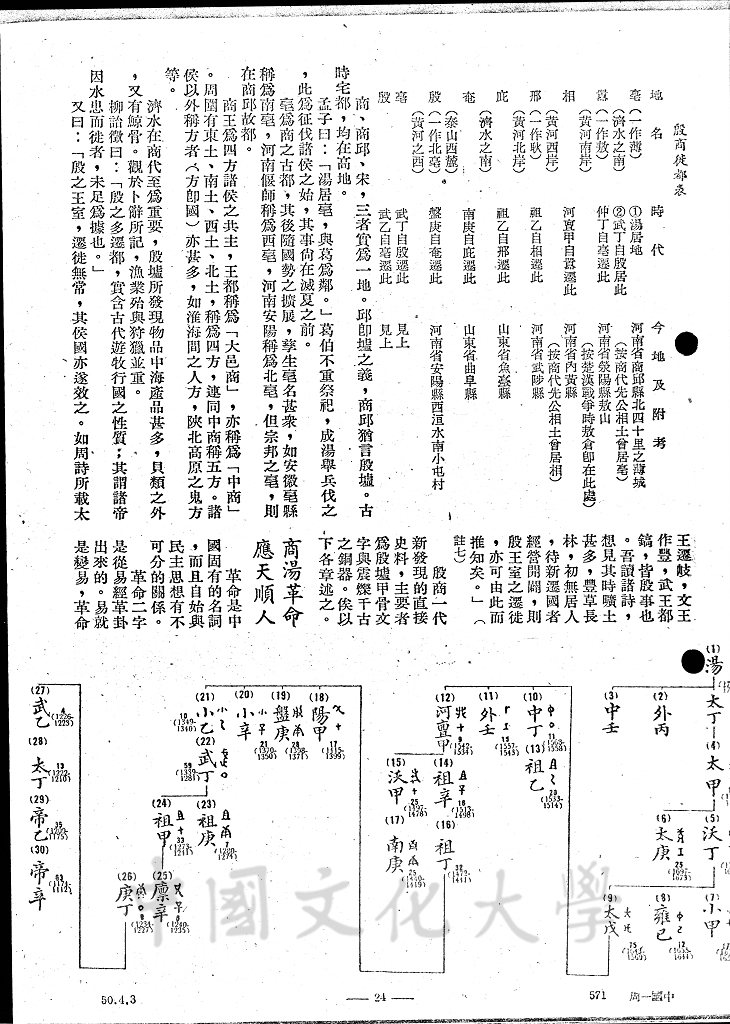 殷商徙都表
地名　時代　今地及附考
亳（一作薄）　①湯居地　河南省商邱縣北四十里之薄城
（濟水之南）　②武丁自殷居此　（按商代先公相土曾居亳）
囂（一作敖）　仲丁自亳遷此　河南省滎陽縣敖山
（黃河南岸）　（按楚漢戰爭時敖倉卽在此處）
相　河亶甲自囂遷此　河南省內黃縣
（黃河西岸）　（按商代先公相土曾居相）
邢（一作耿）　祖乙自相遷此　河南省武陟縣
（黃河北岸）
庇　祖乙自邢遷此　山東省魚臺縣
（濟水之南）
奄　南庚自庇遷此　山東省曲阜縣
（泰山西麓）
殷（一作北亳）　盤庚自奄遷此　河南省安陽縣西洹水南小屯村
（黃河之西）
亳　武丁自殷遷此　見上
殷　武乙自亳遷此　見上
商、商邱、宋，三者實爲一地。邱卽墟之義，商邱猶言殷墟。古
時宅都，均在高地。
孟子曰：「湯居亳，與葛爲鄰。」葛伯不重祭祀，成湯舉兵伐之
，此爲征伐諸侯之始，其事尙在滅夏之前。
亳爲商之古都，其後隨國勢之擴展，孳生亳名甚衆，如安徽亳縣
稱爲南亳，河南偃師稱爲西亳，河南安陽稱爲北亳，但宗邦之亳，則
在商邱故都。
商王爲四方諸侯之共主，王都稱爲「大邑商」，亦稱爲「中商」
。周圍有東土、南土、西土、北土，稱爲四方，連同中商稱五方。諸
侯以外稱方者（方卽國）亦甚多，如淮海間之人方，陝北高原之鬼方
等。
濟水在商代至爲重要，殷墟所發現物品中海產品甚多，貝類之外
，又有鯨骨。觀於卜辭所記，漁業殆與狩獵並重。
柳詒徵曰：「殷之多遷都，實含古代遊牧行國之性質；其謂諸帝
因水患而徙者，未足爲據也。」
又曰：「殷之王室，遷徙無常，其侯國亦遂效之。如周詩所載太
王遷岐，文王
作豐，武王都
鎬，皆殷事也
。吾讀諸詩，
想見其時曠土
甚多，豐草長
林，初無居人
，待新遷國者
經營開闢，則
殷王室之遷徙
，亦可由此而
推知矣。」（
註七）
殷商一代
新發現的直接
史料，主要者
爲殷墟甲骨文
字與震爍千古
之銅器。俟以
下各章述之。
商湯革命
應天順人
革命是中
國固有的名詞
，而且自始與
民主思想有不
可分的關係。
革命二字
是從易經革卦
出來的。易就
是變易，革命
(1)湯
太丁
(4)太甲
(5)沃丁
(7)小甲
(2)外丙
(6)太庚
(8)雍己
(3)中壬
(9)太戊
(10)中丁
(13)祖乙
(11)外壬
(12)河亶甲
(14)祖辛
(16)祖丁
(15)沃甲
(17)南庚
(18)陽甲
(19)盤庚
(20)小辛
(21)小乙
(22)武丁
(23)祖庚
(24)祖甲
(25)廩辛
(26)庚丁
(27)武乙
(28)太丁
(29)帝乙
(30)帝辛
中國文化大學
50.4.3
— 24 —
571 中國一周